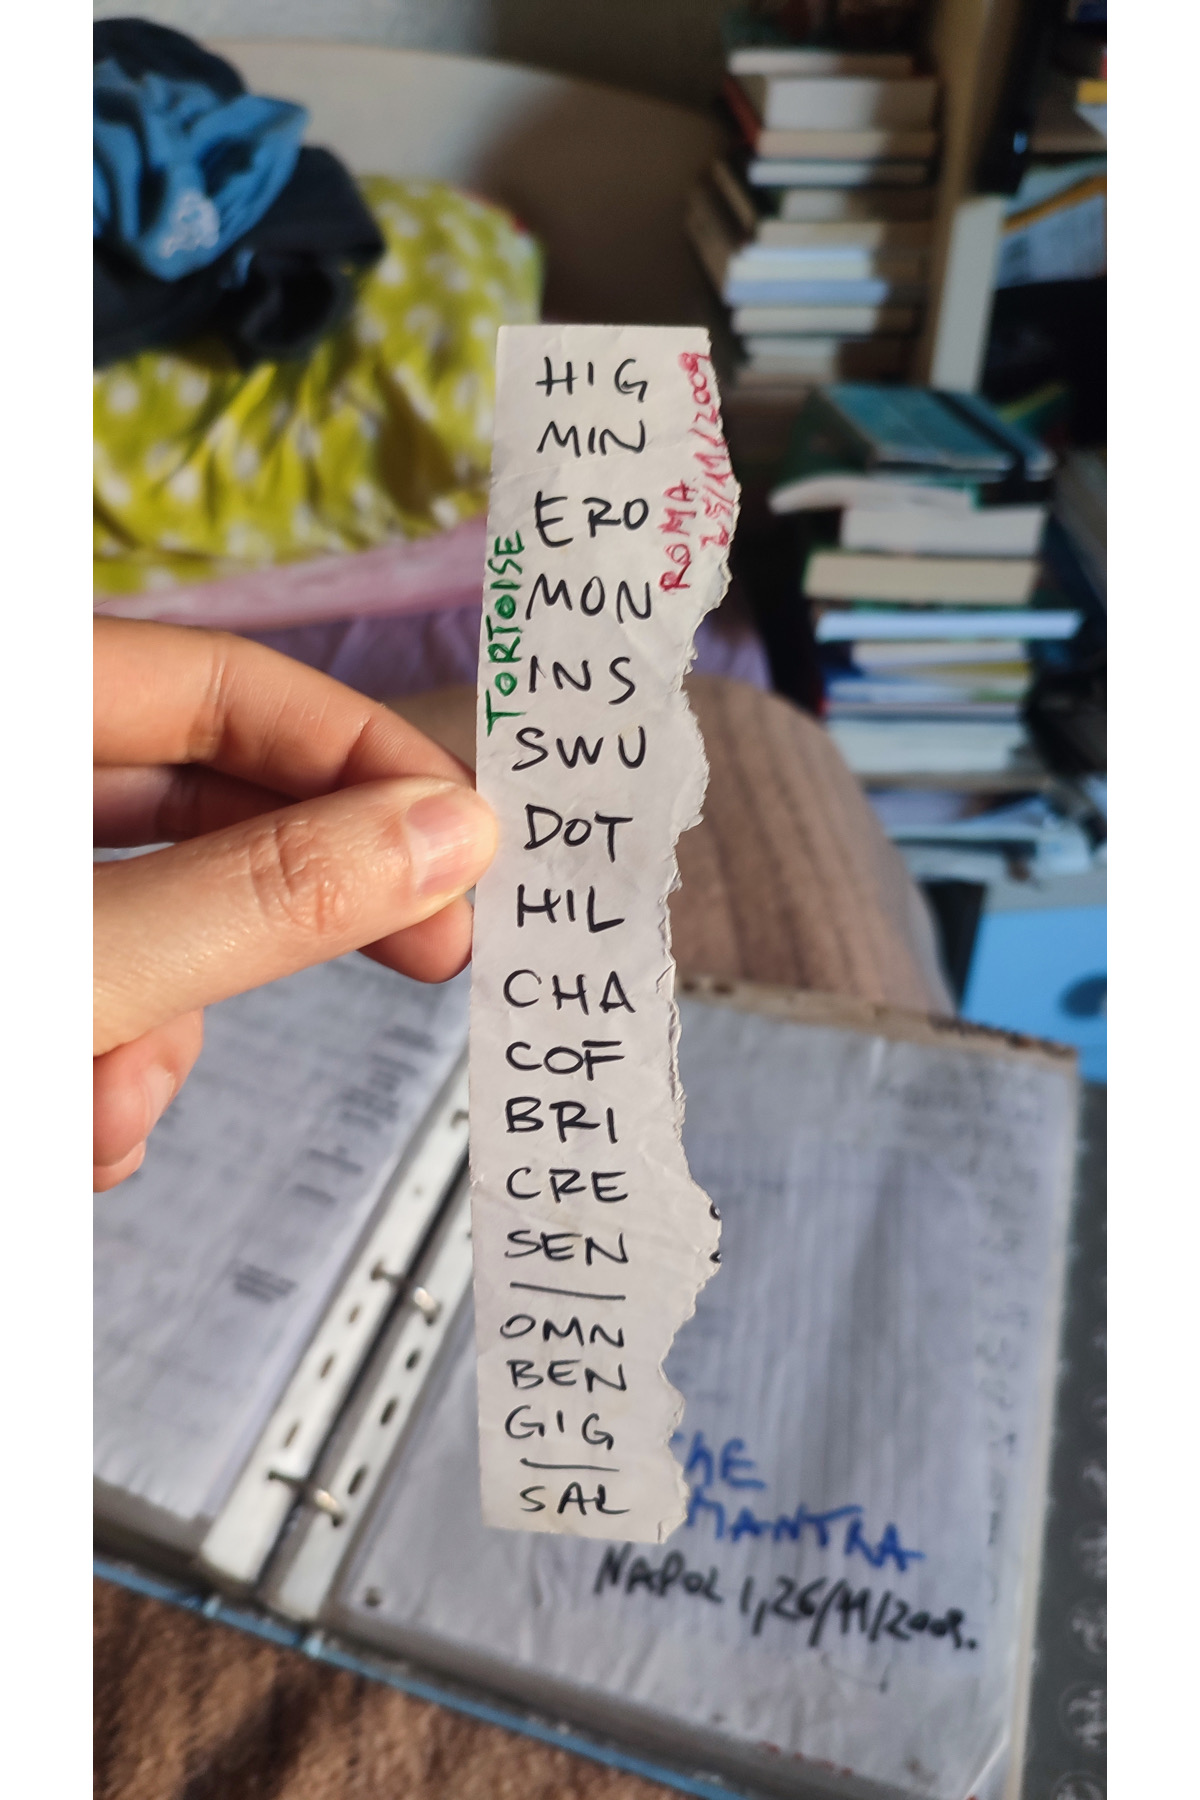 HIG
MIN
ERO
MON
INS
SWU
DOT
HIL
CHA
COF
BRI
CRE
SEN
OMN
BEN
GIG
SAL
TORTOISE
ROMA
25/11/2009
MANTRA
NAPOLI, 26/11/2009.